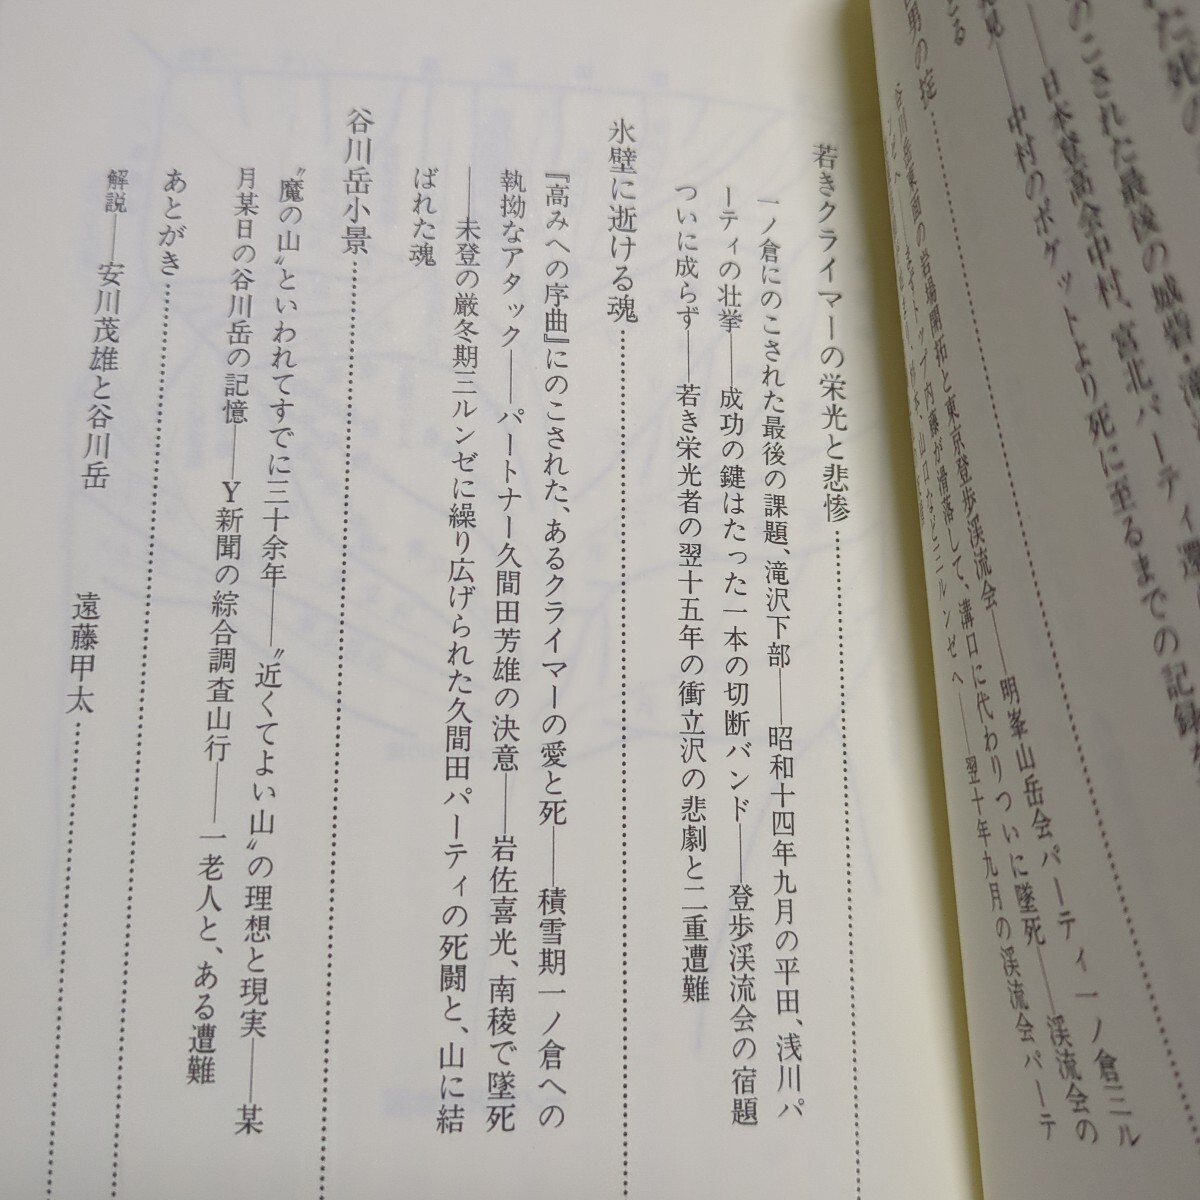 のこされた最後の城砦・滝
日本登高会中村、宮北パーティ
中村のポケットより死に至るまでの記録
男の掟
谷川岳東面の岩場開拓と東京登歩渓流会――明峯山岳会パーティ一ノ倉三ル
トップ内藤が滑落して、溝口に代わりついに墜死――渓流会の
山口など三ルンゼへ――翌十年九月の渓流会パーテ
若きクライマーの栄光と悲惨
一ノ倉にのこされた最後の課題、滝沢下部――昭和十四年九月の平田、浅川パ
ーティの壮挙――成功の鍵はたった一本の切断バンド――登歩渓流会の宿題
ついに成らず――若き栄光者の翌十五年の衝立沢の悲劇と二重遭難
氷壁に逝ける魂
『高みへの序曲』にのこされた、あるクライマーの愛と死――積雪期一ノ倉への
執拗なアタック――パートナー久間田芳雄の決意――岩佐喜光、南稜で墜死
――未登の厳冬期三ルンゼに繰り広げられた久間田パーティの死闘と、山に結
ばれた魂
谷川岳小景
〝魔の山〟といわれてすでに三十余年――〝近くてよい山〟の理想と現実――某
月某日の谷川岳の記憶――Y新聞の綜合調査山行――一老人と、ある遭難
あとがき
解説――安川茂雄と谷川岳
遠藤甲太